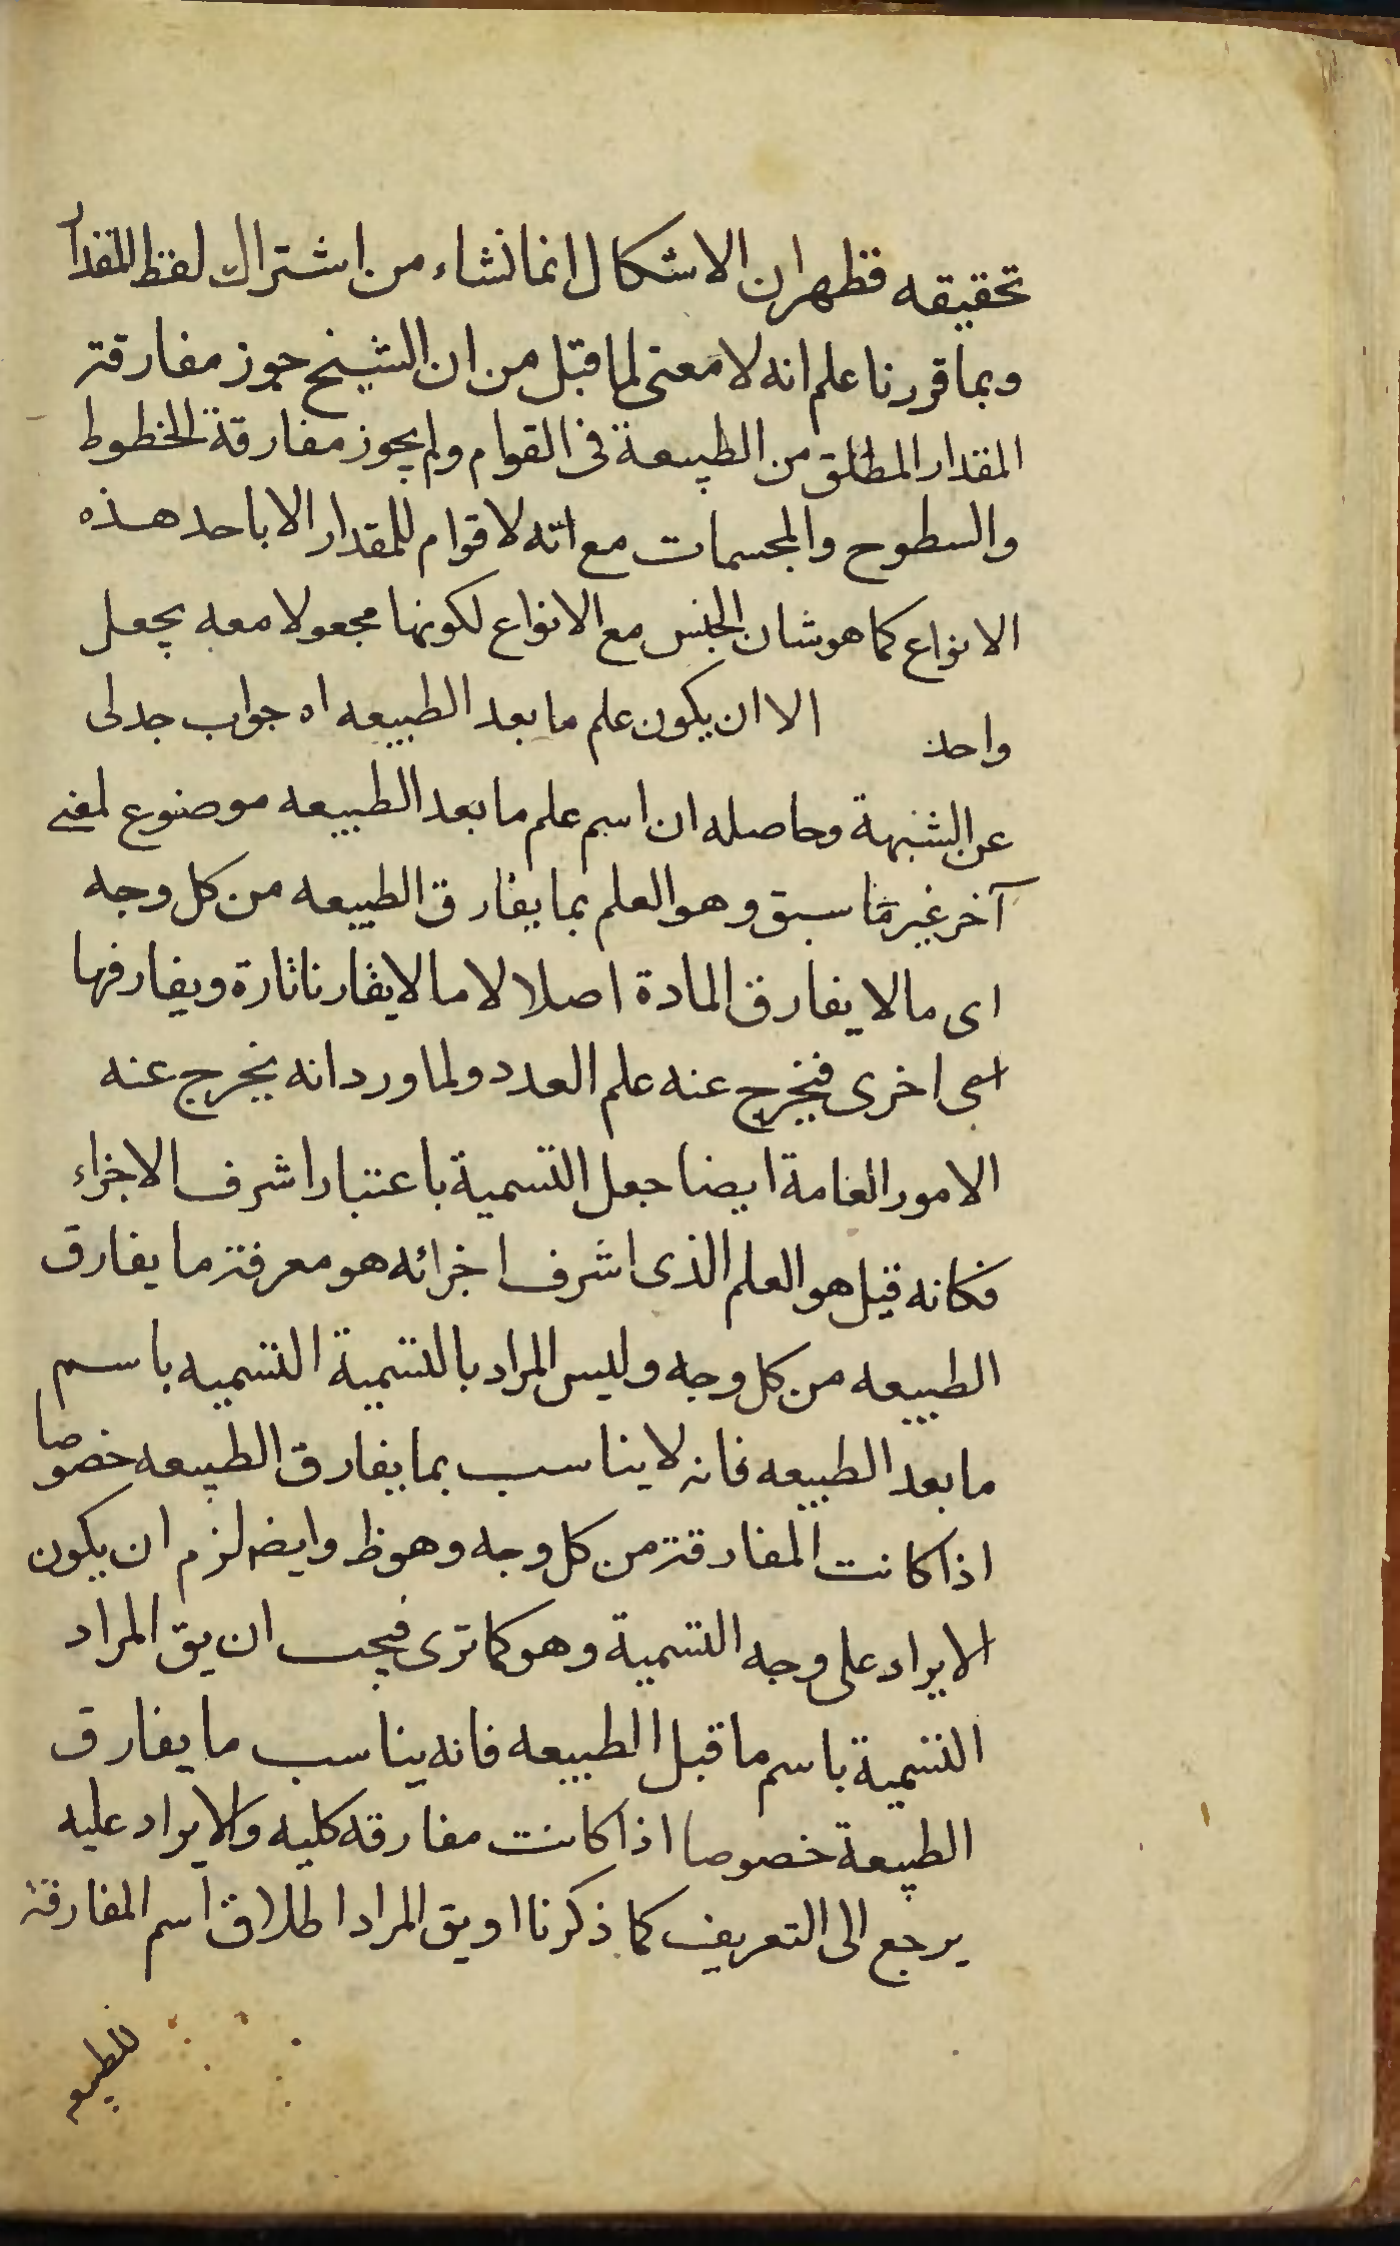 تحقيقه فظهر ان الاشكال انما نشاء من اشتراك لفظ المقدار
وبما قررنا علم انه لا معنى لما قيل من ان الشيخ جوز مفارقة
المقدار المطلق من الطبيعة فى القوام ولم يجوز مفارقة الخطوط
والسطوح والمجسمات مع انه لا قوام للمقدار الا باحد هذه
الانواع كما هو شان الجنس مع الانواع لكونها مجعولا معه بجعل
واحد الا ان يكون علم ما بعد الطبيعه اه جواب جدلى
عن الشبهة وحاصله ان اسم علم ما بعد الطبيعه موضوع لمعنى
آخر غير ما سبق وهو العلم بما يفارق الطبيعه من كل وجه
اى ما لا يفارق المادة اصلا لا ما لا يقارنا تارة ويفارقها
اخرى فيخرج عنه علم العدد ولما ورد انه يخرج عنه
الامور العامة ايضا جعل التسمية باعتبار اشرف الاجزاء
فكانه قيل هو العلم الذى اشرف اجزائه هو معرفة ما يفارق
الطبيعه من كل وجه وليس المراد بالتسمية التسميه باسم
ما بعد الطبيعه فانه لا يناسب بما يفارق الطبيعه خصوصا
اذا كانت المفارقة من كل وجه وهو ظ وايضه لزم ان يكون
الايراد على وجه التسمية وهو كما ترى فيجب ان يق المراد
التسمية باسم ما قبل الطبيعه فانه يناسب ما يفارق
الطبيعة خصوصا اذا كانت مفارقه كليه والايراد عليه
يرجع الى التعريف كما ذكرنا او يق المراد اطلاق اسم المفارقة
للطبيعه